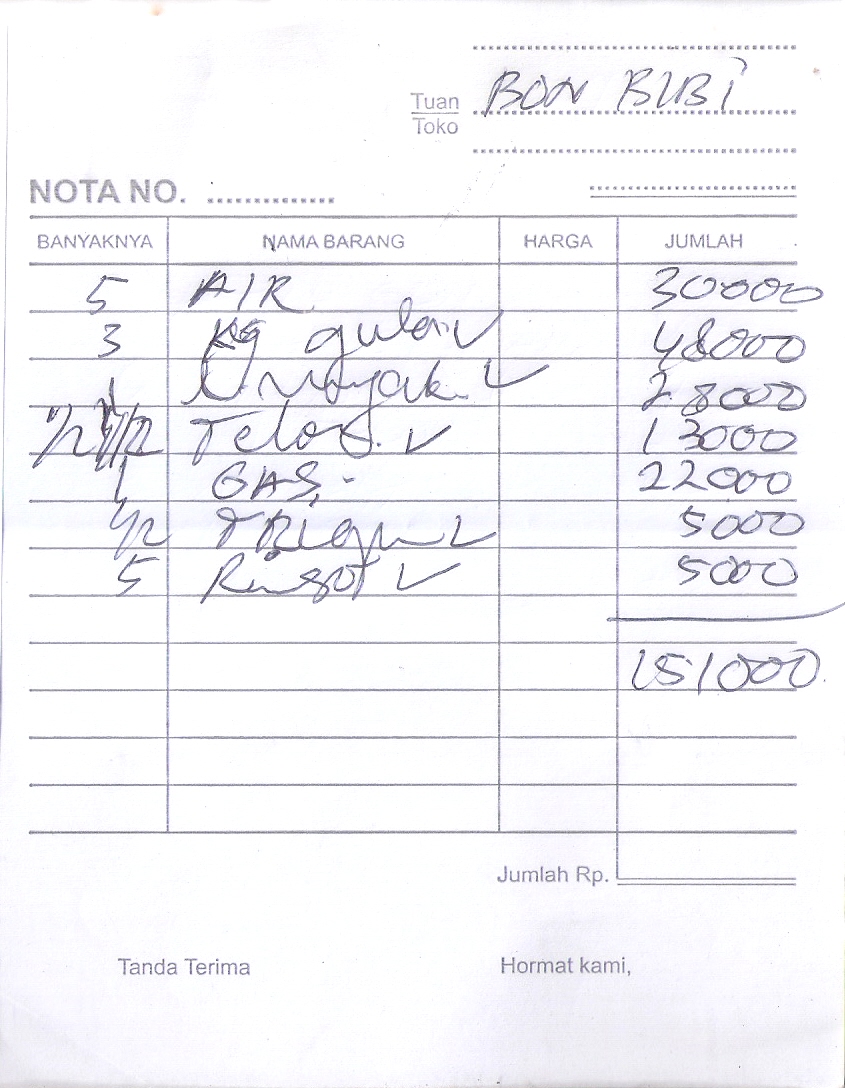 Tuan BON BIBI
Toko
NOTA NO. ..............
BANYAKNYA NAMA BARANG HARGA JUMLAH
5 AIR 30000
3 Kg gula ✓ 48000
1 L minyak ✓ 28000
1/2 Telor ✓ 13000
1 GAS - 22000
1/2 TRIGU ✓ 5000
5 ✓ 5000
151000
Jumlah Rp.
Tanda Terima Hormat kami,